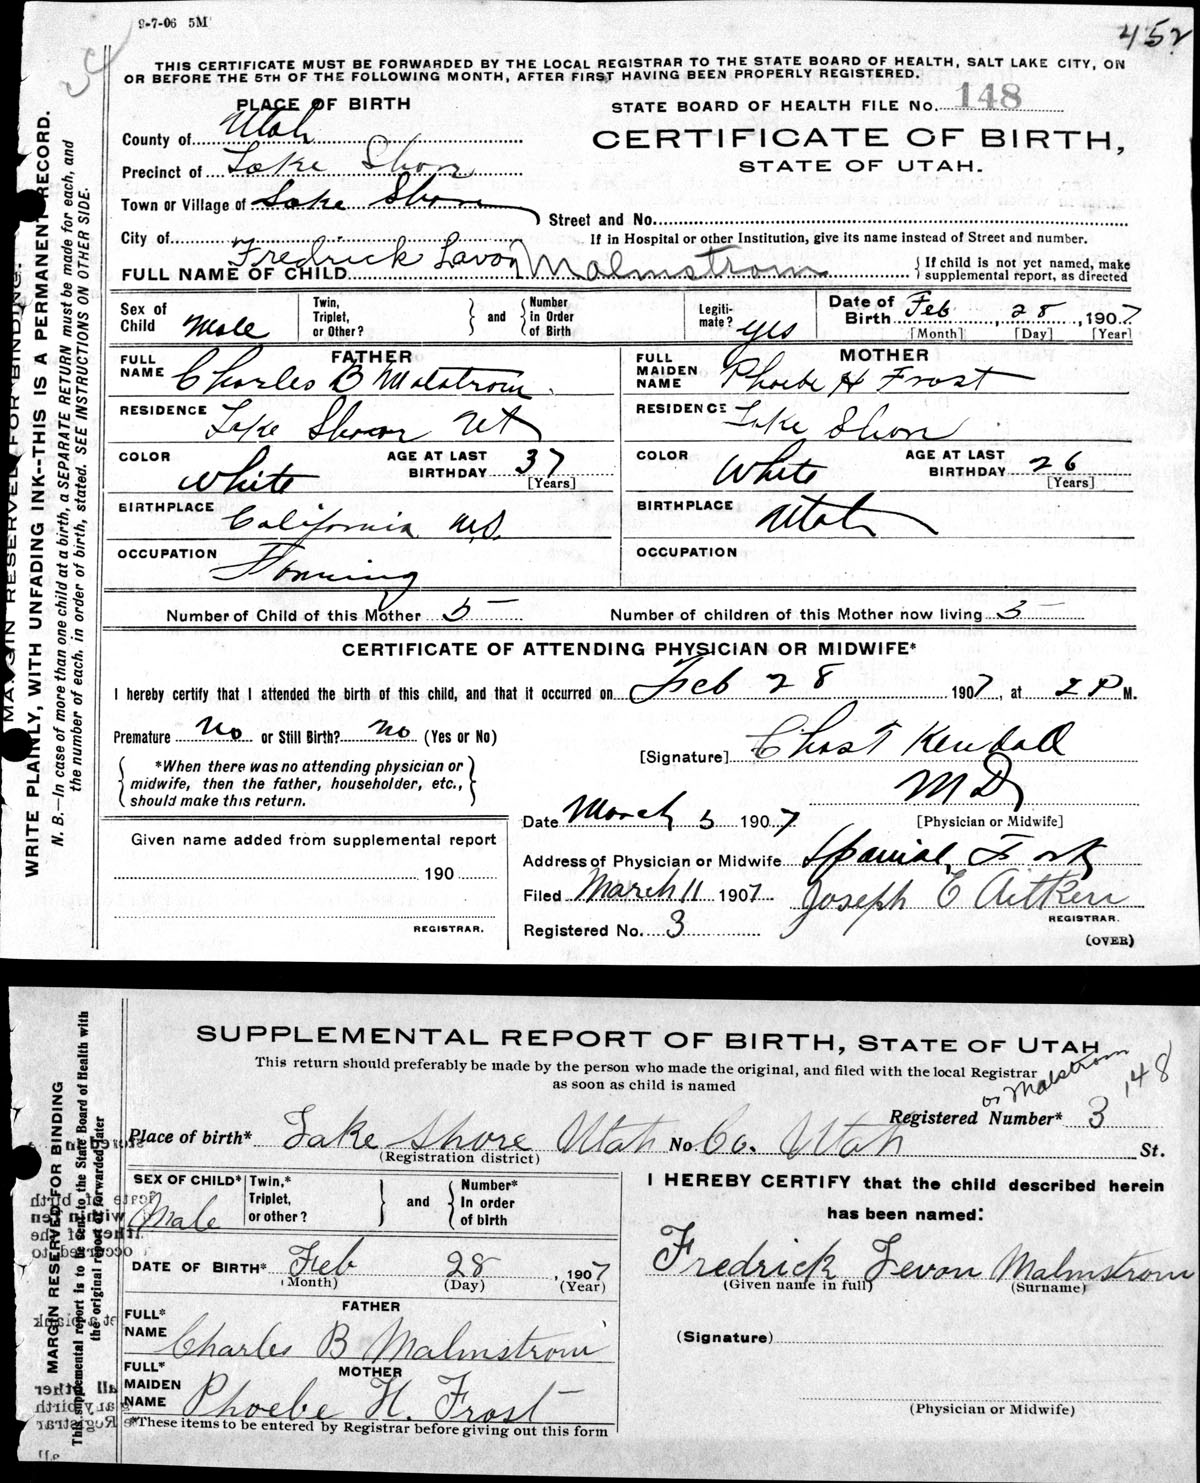 9-7-06 5M
452
THIS CERTIFICATE MUST BE FORWARDED BY THE LOCAL REGISTRAR TO THE STATE BOARD OF HEALTH, SALT LAKE CITY, ON
OR BEFORE THE 5TH OF THE FOLLOWING MONTH, AFTER FIRST HAVING BEEN PROPERLY REGISTERED.
PLACE OF BIRTH
STATE BOARD OF HEALTH FILE No. 148
County of Utah
CERTIFICATE OF BIRTH,
STATE OF UTAH.
Precinct of Lake Shore
Town or Village of Lake Shore
Street and No.
City of
If in Hospital or other Institution, give its name instead of Street and number.
FULL NAME OF CHILD Fredrick Lavon Malmstrom
{ If child is not yet named, make
supplemental report, as directed
Sex of Child Male
Twin, Triplet, or Other? } and { Number in Order of Birth
Legiti-mate? yes
Date of Birth Feb 28, 1907
[Month] [Day] [Year]
FATHER
FULL NAME Charles B Malstrom
RESIDENCE Lake Shore Ut
COLOR White AGE AT LAST BIRTHDAY 37 [Years]
BIRTHPLACE California
OCCUPATION Farming
MOTHER
FULL MAIDEN NAME Phoebe H Frost
RESIDENCE Lake Shore
COLOR White AGE AT LAST BIRTHDAY 26 [Years]
BIRTHPLACE Utah
OCCUPATION
Number of Child of this Mother 5 Number of children of this Mother now living 5
CERTIFICATE OF ATTENDING PHYSICIAN OR MIDWIFE*
I hereby certify that I attended the birth of this child, and that it occurred on Feb 28 1907, at 2 P M.
Premature No or Still Birth? No (Yes or No)
[Signature] Chas T Kendall
MD
[Physician or Midwife]
{ *When there was no attending physician or
midwife, then the father, householder, etc.,
should make this return. }
Date March 5 1907
Given name added from supplemental report
190
REGISTRAR.
Address of Physician or Midwife Spanish Fork
Filed March 11 1907 Joseph E Aitken
REGISTRAR.
Registered No. 3
(OVER)
MARGIN RESERVED FOR BINDING.
WRITE PLAINLY, WITH UNFADING INK--THIS IS A PERMANENT RECORD.
N. B.—In case of more than one child at a birth, a SEPARATE RETURN must be made for each, and
the number of each, in order of birth, stated. SEE INSTRUCTIONS ON OTHER SIDE.
SUPPLEMENTAL REPORT OF BIRTH, STATE OF UTAH
This return should preferably be made by the person who made the original, and filed with the local Registrar
as soon as child is named
or Malstrom 148
Registered Number* 3
Place of birth* Lake Shore Utah No. Co. Utah St.
(Registration district)
SEX OF CHILD* Male
Twin,* Triplet, or other? } and { Number* In order of birth
DATE OF BIRTH* Feb 28, 1907
(Month) (Day) (Year)
FATHER
FULL* NAME Charles B Malmstrom
MOTHER
FULL* MAIDEN NAME Phoebe H. Frost
*These items to be entered by Registrar before giving out this form
I HEREBY CERTIFY that the child described herein
has been named:
Fredrick Levon Malmstrom
(Given name in full) (Surname)
(Signature)
(Physician or Midwife)
MARGIN RESERVED FOR BINDING
This supplemental report is to be sent to the State Board of Health with
the original report or forwarded later